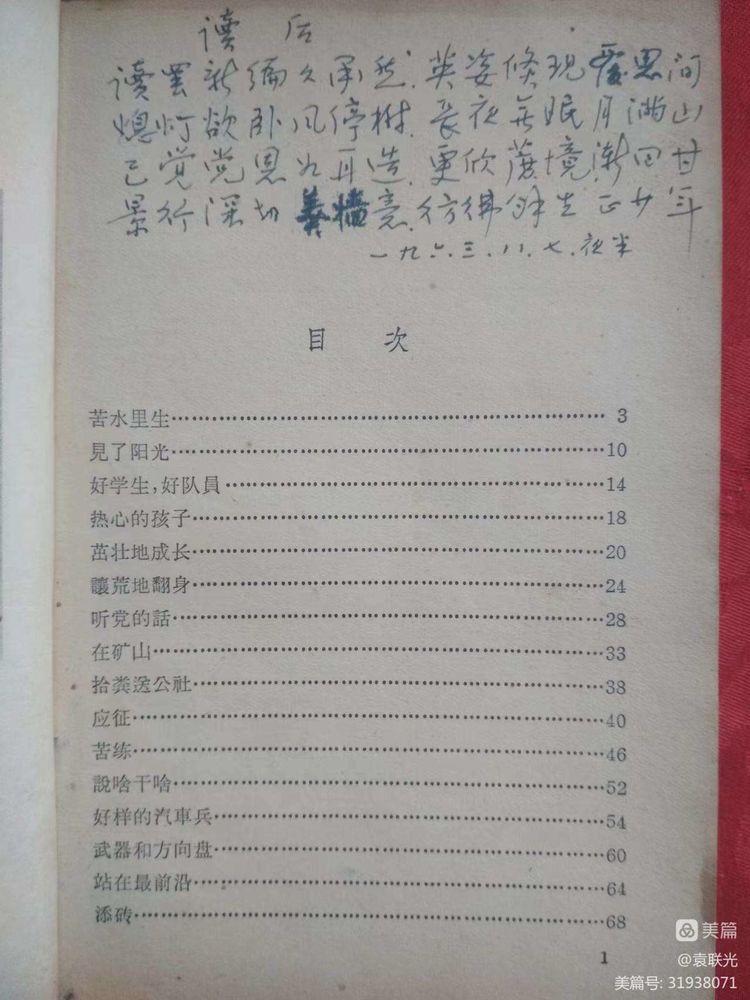 读后
读罢新编久肃然.英姿倏现思间
熄灯欲卧风停树.長夜無眠月满山
已觉党恩如再造.更欣蔗境渐回甘
景行深切羹墙意.彷彿生正少年
一九六三.八.七.夜半
目 次
苦水里生……3
見了阳光……10
好学生,好队員……14
热心的孩子……18
茁壮地成长……20
讓荒地翻身……24
听党的話……28
在矿山……33
拾粪送公社……38
应征……40
苦练……46
說啥干啥……52
好样的汽車兵……54
武器和方向盘……60
站在最前沿……64
添砖……68
1
美篇
@袁联光
美篇号: 31938071